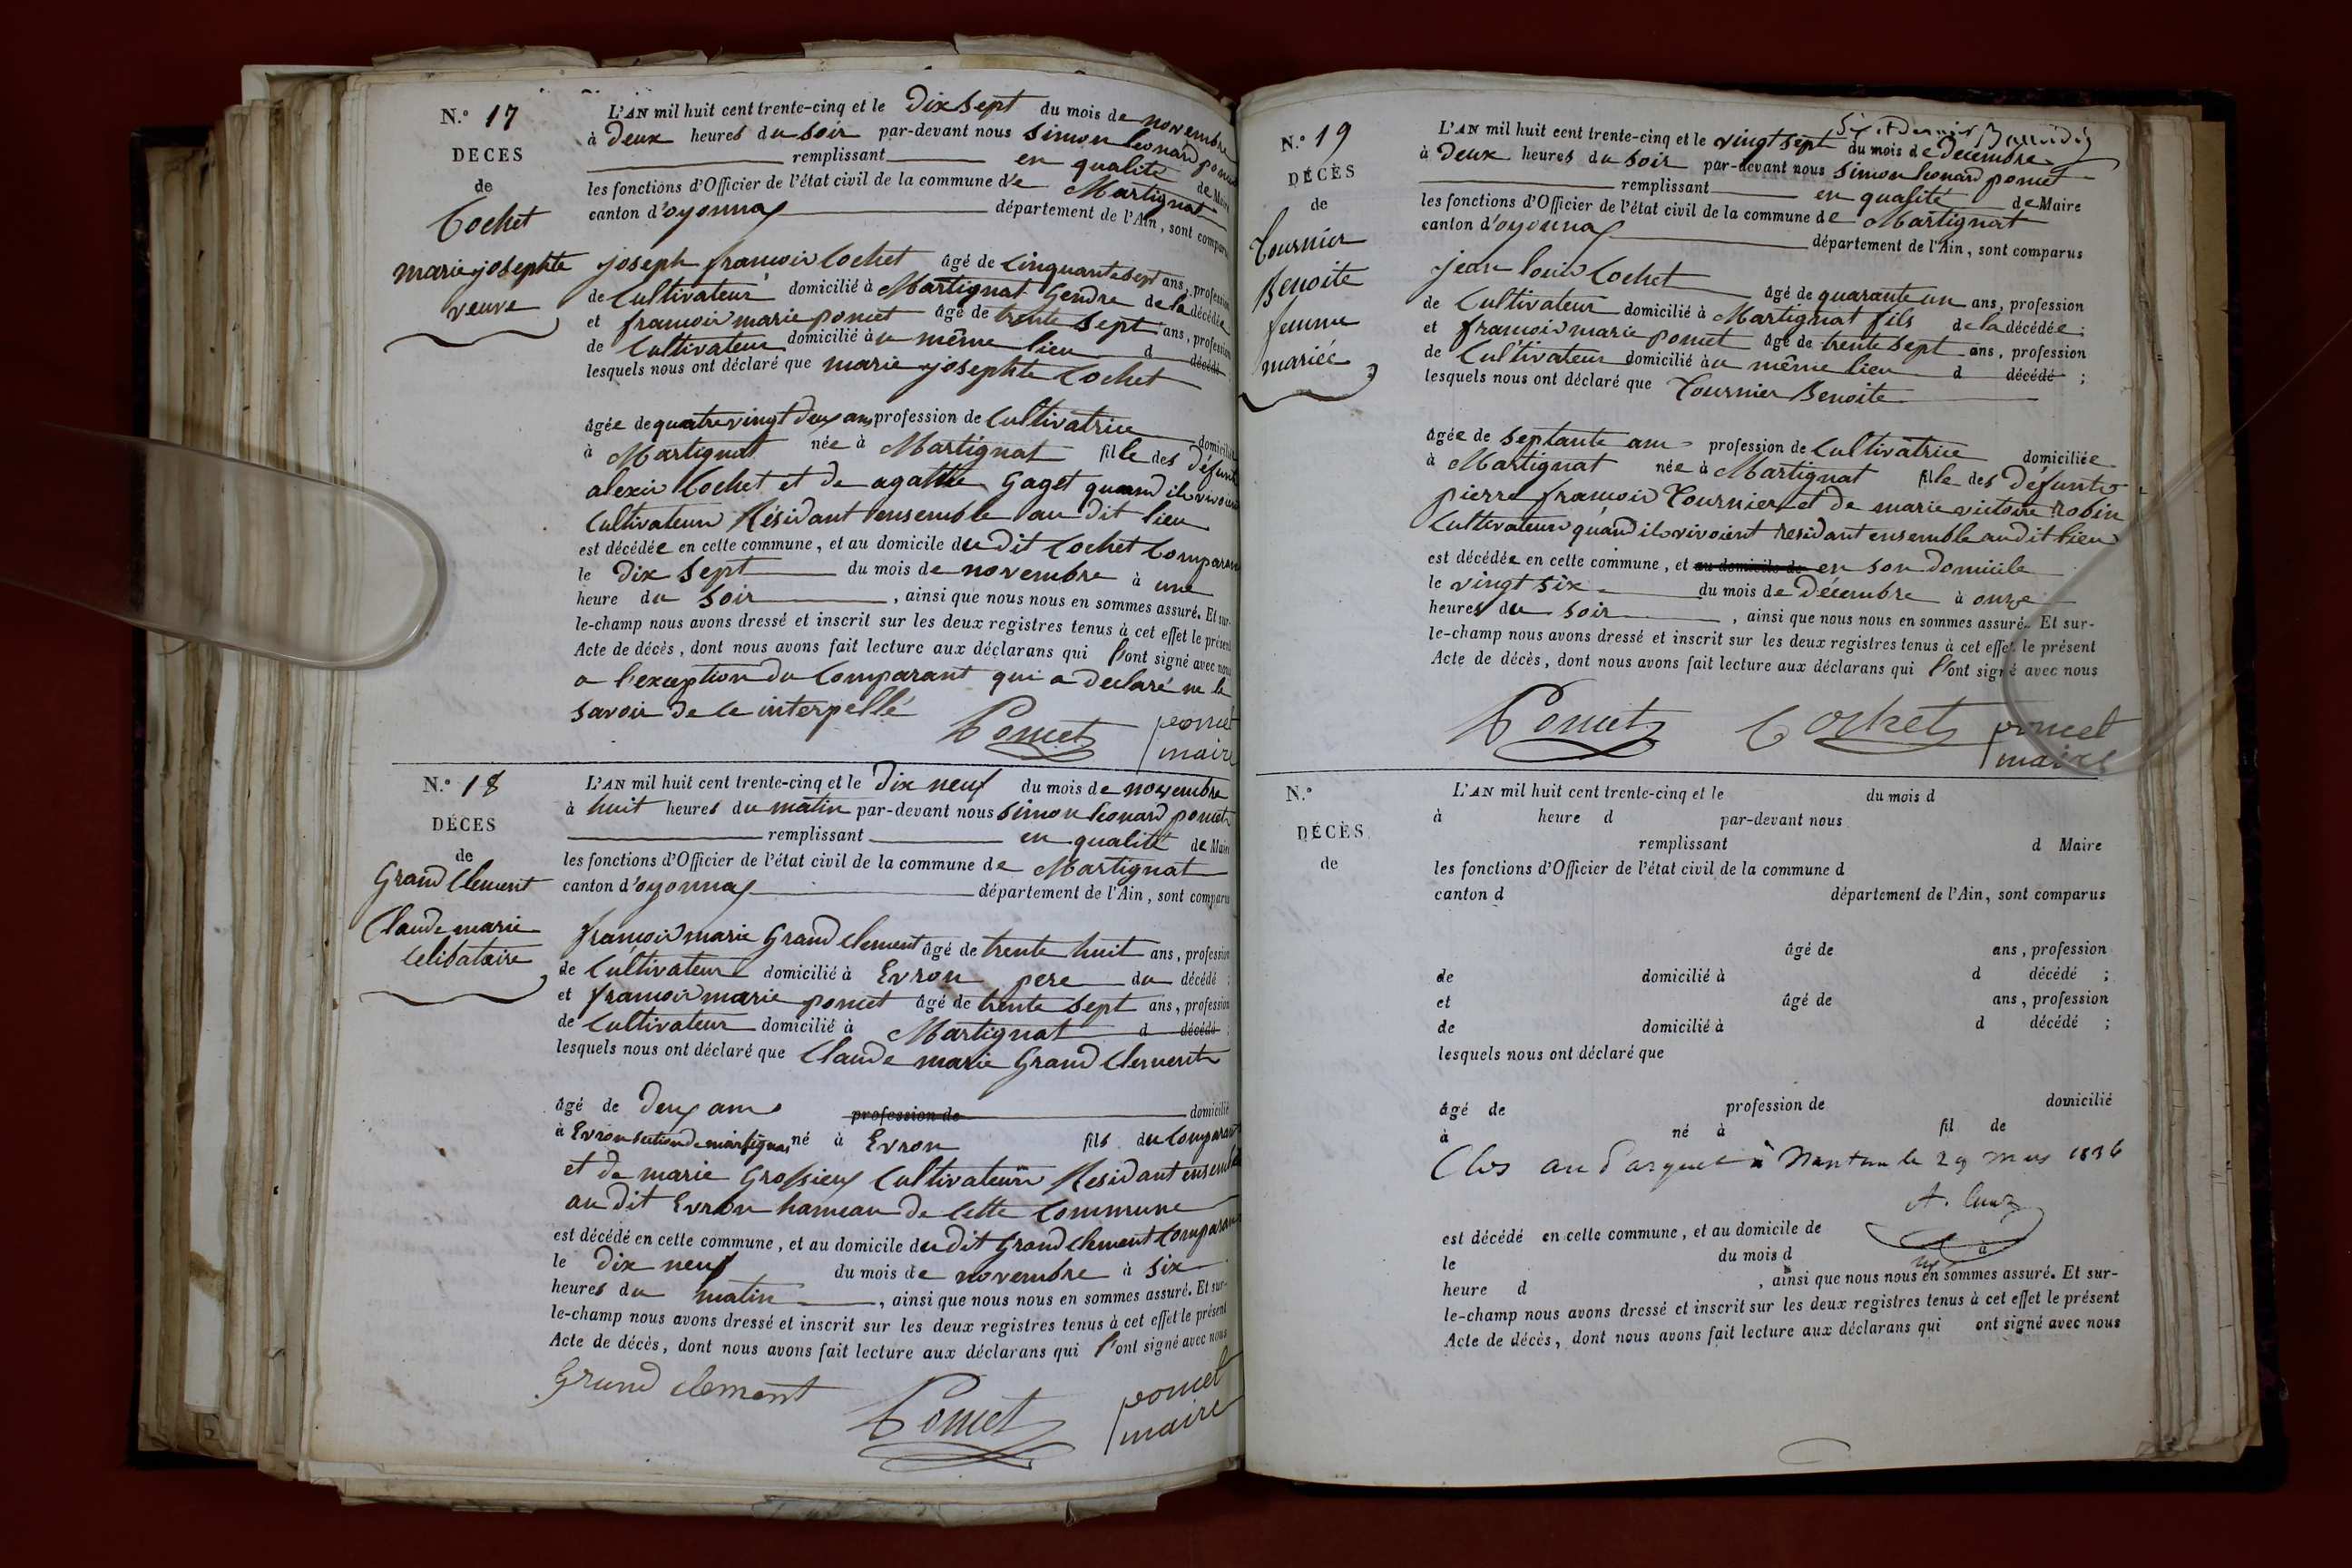 N.° 17
DECES
de
Cochet
marie josephte
veuve
L'AN mil huit cent trente-cinq et le Dix sept du mois de novembre
à Deux heures du soir par-devant nous simon leonard poncet
remplissant en qualité de Maire
les fonctions d'Officier de l'état civil de la commune de Martignat
canton d'oyonnax département de l'Ain, sont comparus
joseph francois Cochet âgé de Cinquante sept ans, profession
de Cultivateur domicilié à Martignat Gendre de la décédée
et francois marie poncet âgé de trente sept ans, profession
de Cultivateur domicilié au même lieu d décédé
lesquels nous ont déclaré que marie josephte Cochet
âgée de quatre vingt deux ans profession de Cultivatrice domiciliée
à Martignat née à Martignat fille des Défunts
alexis Cochet et de agathe Gaget quand ils vivoient
Cultivateurs Résidant ensemble au dit lieu
est décédée en cette commune, et au domicile du Dit Cochet Comparant
le Dix sept du mois de novembre à une
heure du soir, ainsi que nous nous en sommes assuré. Et sur-
le-champ nous avons dressé et inscrit sur les deux registres tenus à cet effet le présent
Acte de décès, dont nous avons fait lecture aux déclarans qui l'ont signé avec nous
a l'exception du Comparant qui a declaré ne le
savoir de ce interpellé
Poncet poncet
maire
N.° 18
DÉCES
de
Grand Clement
Claude marie
Celibataire
L'AN mil huit cent trente-cinq et le Dix neuf du mois de novembre
à huit heures du matin par-devant nous simon leonard poncet
remplissant en qualité de Maire
les fonctions d'Officier de l'état civil de la commune de Martignat
canton d'oyonnax département de l'Ain, sont comparus
francois marie Grand Clement âgé de trente huit ans, profession
de Cultivateur domicilié à Evron pere du décédé ;
et francois marie poncet âgé de trente sept ans, profession
de Cultivateur domicilié à Martignat d décédé ;
lesquels nous ont déclaré que Claude marie Grand Clement
âgé de Deux ans profession de domicilié
à Evron section de martignat né à Evron fils du Comparant
et de marie Grossieux Cultivateurs Residant ensemble
au dit Evron hameau de Cette Commune
est décédé en cette commune, et au domicile du Dit Grand Clement Comparant
le Dix neuf du mois de novembre à six
heures du matin, ainsi que nous nous en sommes assuré. Et sur-
le-champ nous avons dressé et inscrit sur les deux registres tenus à cet effet le présent
Acte de décès, dont nous avons fait lecture aux déclarans qui l'ont signé avec nous
Grand clement Poncet poncet
maire
N.° 19
DÉCÈS
de
Tournier
Benoite
femme
mariée
L'AN mil huit cent trente-cinq et le vingt sept du mois de Decembre
à Deux heures du soir par-devant nous simon leonard poncet
remplissant en qualité de Maire
les fonctions d'Officier de l'état civil de la commune de Martignat
canton d'oyonnax département de l'Ain, sont comparus
jean louis Cochet âgé de quarante un ans, profession
de Cultivateur domicilié à Martignat fils de la décédée ;
et francois marie poncet âgé de trente sept ans, profession
de Cultivateur domicilié au même lieu d décédé ;
lesquels nous ont déclaré que Tournier Benoite
âgée de septante ans profession de Cultivatrice domiciliée
à Martignat née à Martignat fille des Défunts
pierre francois Tournier et de marie victoire Robin
Cultivateurs quand ils vivoient residant ensemble au dit lieu
est décédée en cette commune, et au domicile de en son Domicile
le vingt six du mois de Décembre à onze
heures du soir, ainsi que nous nous en sommes assuré. Et sur-
le-champ nous avons dressé et inscrit sur les deux registres tenus à cet effet le présent
Acte de décès, dont nous avons fait lecture aux déclarans qui l'ont signé avec nous
Poncet Cochet poncet
maire
N.°
DÉCÈS
de
L'AN mil huit cent trente-cinq et le du mois d
à heure d par-devant nous
remplissant d Maire
les fonctions d'Officier de l'état civil de la commune d
canton d département de l'Ain, sont comparus
âgé de ans, profession
de domicilié à d décédé ;
et âgé de ans, profession
de domicilié à d décédé ;
lesquels nous ont déclaré que
âgé de profession de domicilié
à né à fil de
Clos au parquet à Nantua le 29 mars 1836
est décédé en cette commune, et au domicile de
le du mois d à
heure d, ainsi que nous nous en sommes assuré. Et sur-
le-champ nous avons dressé et inscrit sur les deux registres tenus à cet effet le présent
Acte de décès, dont nous avons fait lecture aux déclarans qui ont signé avec nous